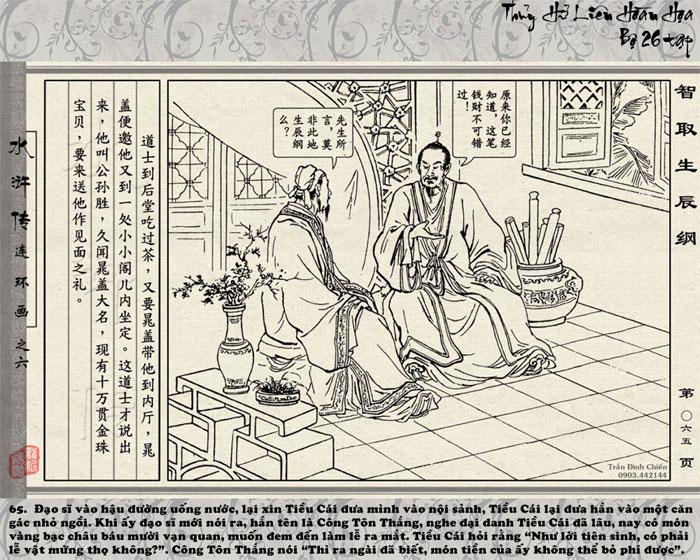 Thủy Hử Liên Hoàn Họa
Bộ 26 tập
智取生辰纲
第〇六五页
水浒传连环画之六
原来你已经
知道，这笔
钱财不可错
过！
先生所
言，莫
非此地
生辰纲
么？
道士到后堂吃过茶，又要晁盖带他到内厅，晁
盖便邀他又到一处小小阁儿内坐定。这道士才说出
来，他叫公孙胜，久闻晁盖大名，现有十万贯金珠
宝贝，要来送他作见面之礼。
Trần Đình Chiến
0903.442142
65. Đạo sĩ vào hậu đường uống nước, lại xin Tiều Cái đưa mình vào nội sảnh, Tiều Cái lại đưa hắn vào một căn
gác nhỏ ngồi. Khi ấy đạo sĩ mới nói ra, hắn tên là Công Tôn Thắng, nghe đại danh Tiều Cái đã lâu, nay có món
vàng bạc châu báu mười vạn quan, muốn đem đến làm lễ ra mắt. Tiều Cái hỏi rằng “Như lời tiên sinh, có phải
lễ vật mừng thọ không?”. Công Tôn Thắng nói “Thì ra ngài đã biết, món tiền của ấy không thể bỏ phí được”.